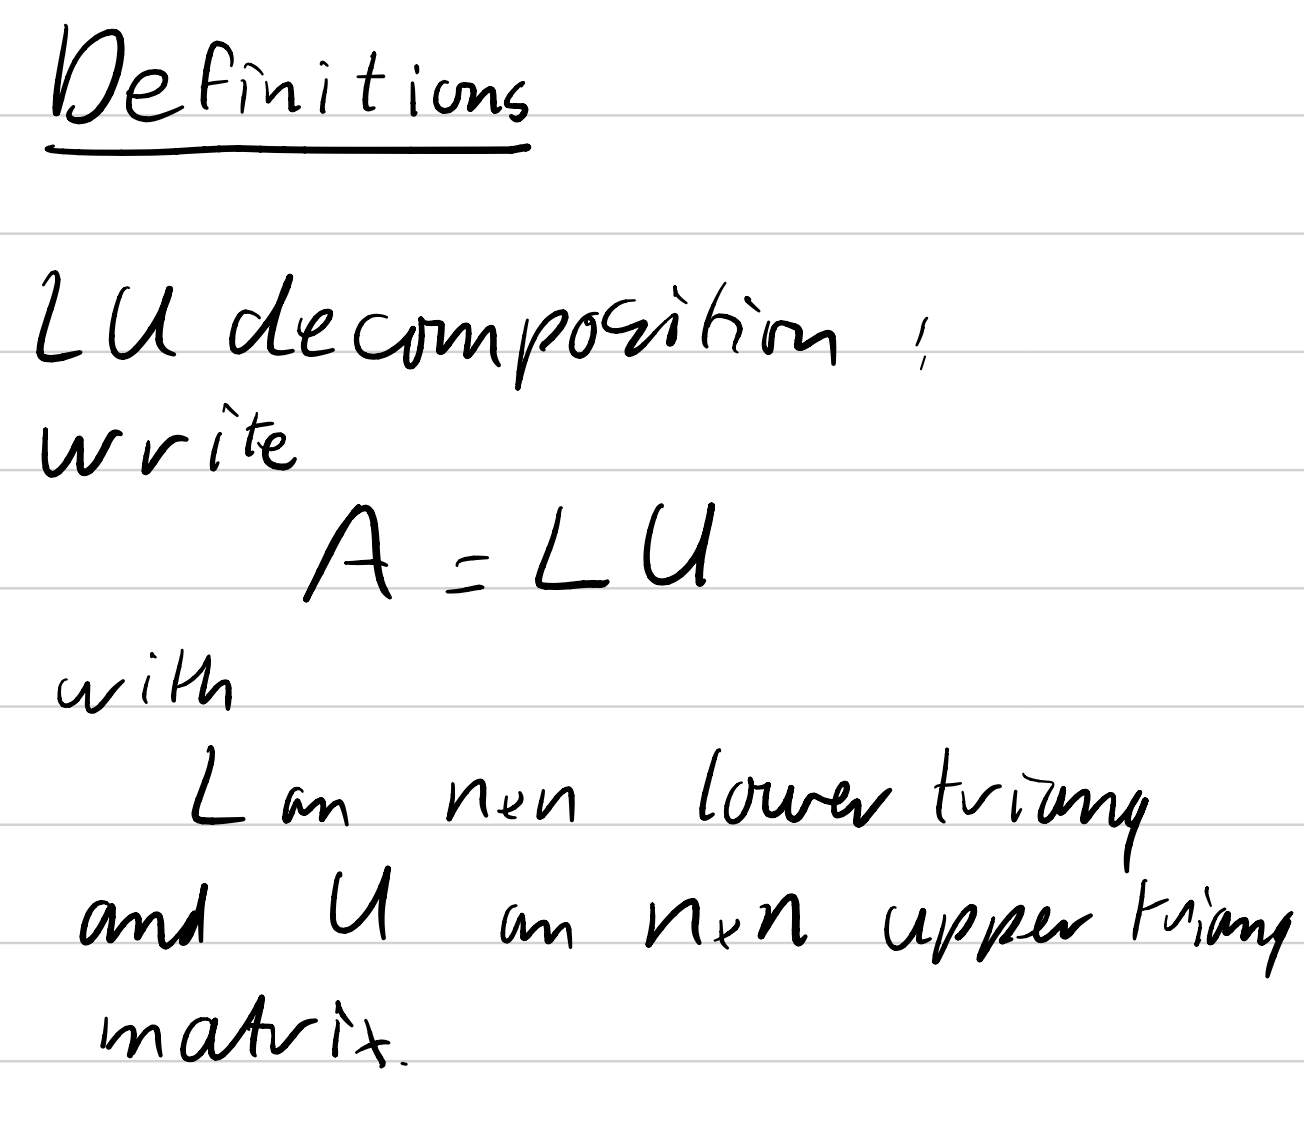 Definitions
LU decomposition :
write
A = LU
with
L an n×n lower triang
and U an n×n upper triang
matrix.